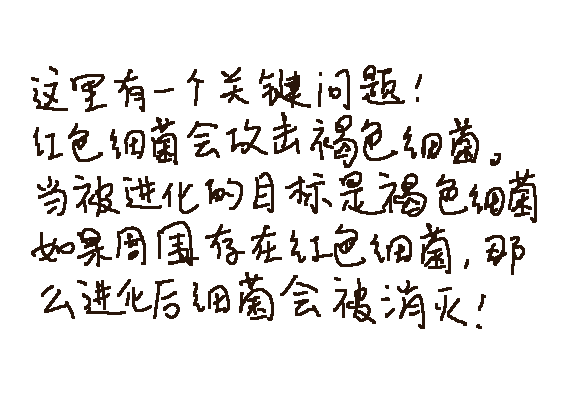 这里有一个关键问题！
红色细菌会攻击褐色细菌。
当被进化的目标是褐色细菌
如果周围存在红色细菌，那
么进化后细菌会被消灭！